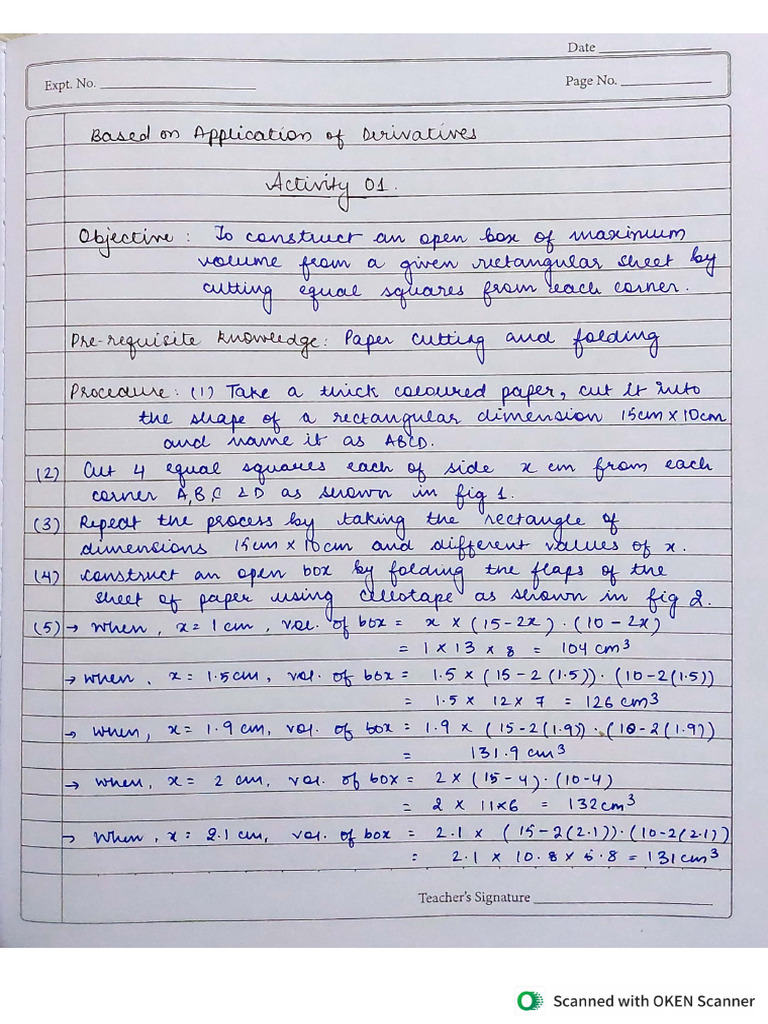 Date
Expt. No.
Page No.
Based on Application of Derivatives
Activity 01.
Objective : To construct an open box of maximum
volume from a given rectangular sheet by
cutting equal squares from each corner.
Pre-requisite knowledge: Paper cutting and folding
Procedure : (1) Take a thick coloured paper, cut it into
the shape of a rectangular dimension 15cm x 10cm
and name it as ABCD.
(2) Cut 4 equal squares each of side x cm from each
corner A, B, C & D as shown in fig 1.
(3) Repeat the process by taking the rectangle of
dimensions 15cm x 10cm and different values of x.
(4) Construct an open box by folding the flaps of the
sheet of paper using cellotape as shown in fig 2.
(5) → When, x = 1 cm, vol. of box = x × (15-2x) · (10-2x)
= 1 × 13 × 8 = 104 cm³
→ when, x = 1.5cm, vol. of box = 1.5 × (15-2(1.5)) · (10-2(1.5))
= 1.5 × 12 × 7 = 126 cm³
→ when, x = 1.9 cm, vol. of box = 1.9 × (15-2(1.9)) · (10-2(1.9))
= 131.9 cm³
→ when, x = 2 cm, vol. of box = 2 × (15-4) · (10-4)
= 2 × 11×6 = 132cm³
→ When, x = 2.1 cm, vol. of box = 2.1 × (15-2(2.1)) · (10-2(2.1))
= 2.1 × 10.8 × 5.8 = 131cm³
Teacher's Signature
Scanned with OKEN Scanner